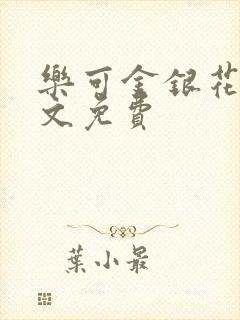 樂可金銀花
文免費
葉小最